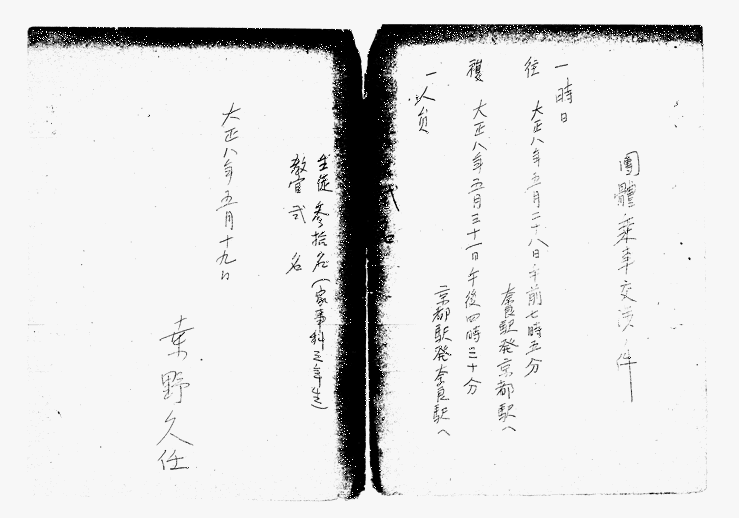 團體乗車交渉ノ件
一時日
往 大正八年五月二十八日午前七時五分
奈良駅発京都駅ヘ
復 大正八年五月三十一日午後四時三十分
京都駅発奈良駅ヘ
一人員
生徒 参拾名（家事科三年生）
教官 弐名
大正八年五月十九日
野久任